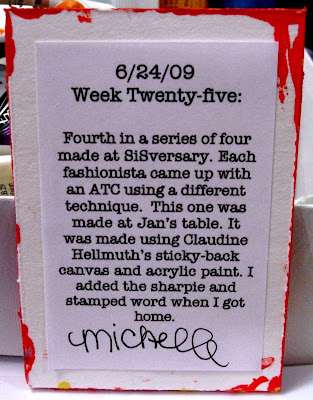 6/24/09
Week Twenty-five:
Fourth in a series of four
made at SiSversary. Each
fashionista came up with
an ATC using a different
technique. This one was
made at Jan's table. It
was made using Claudine
Hellmuth's sticky-back
canvas and acrylic paint. I
added the sharpie and
stamped word when I got
home.
Michelle